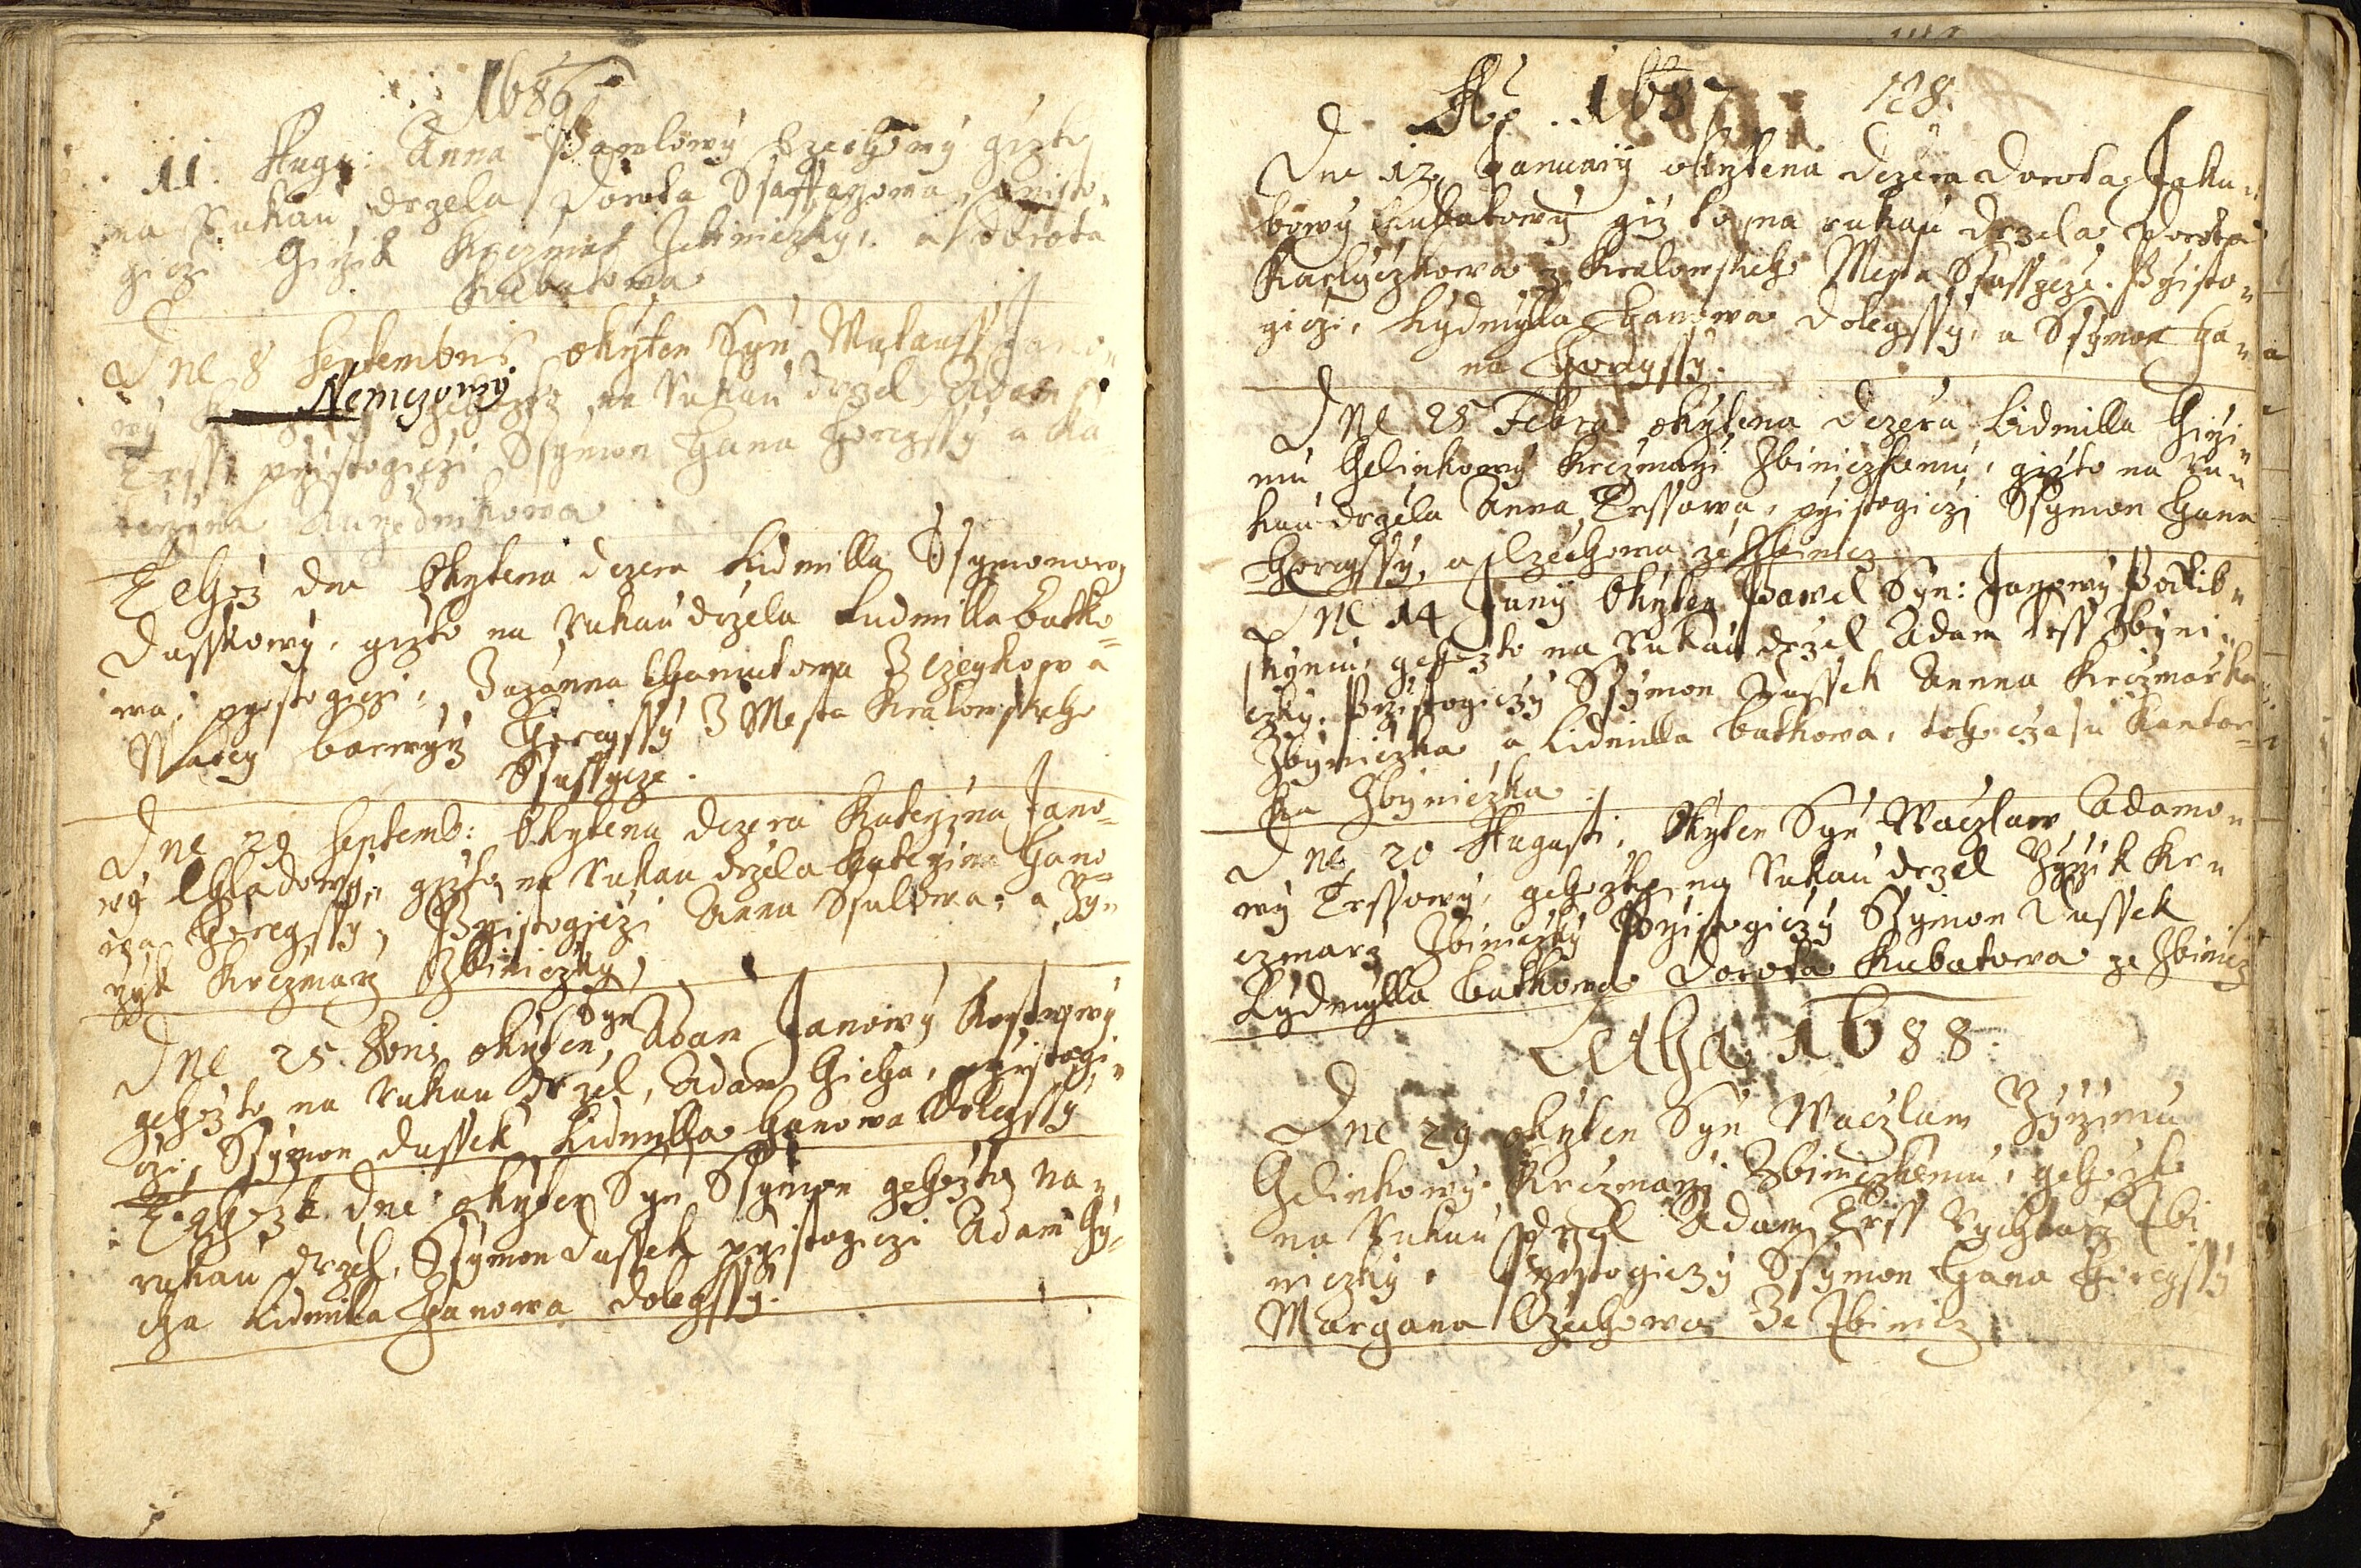 1686
11. Aug: Anna Pawlowy Czechowy gizto
na rukau drzela Dorota Ssaffarzowa, Przisto-
giczi Girzik Krczmarz Zbiniczky, a Dorota
Kubatowa
Dne 8 Septembris okrzten Syn Matauss Jano-
wy Nemczowy gehozto na rukau drzel Adam
Trss. przistogiczi Ssymon Hana Horegssy a Ka-
terzina
Tehoz dne Okrztena dczera Lidmilla Ssymonowy
Dusskowy, gizto na rukau drzela Ludmilla batko-
wa, przistogiczi, Zuzanna Z Czeykow a
Matieg barwyrz Horegssy Z Mesta Kralowskeho
Sussycze.
Dne 29 Septemb: Okrztena dczera Katerzina Jano-
wy Chladowy, gizto na rukau drzela Katerzina Hano-
wa Horegssy, Przistogiczi Anna Ssulowa, a Gy-
rzyk Krczmarz Zbiniczky,
Syn
Dne 25. 8bris okrzten, Adam Janowy
gehozto na rukau drzel, Adam Gicha, przistogi-
czi, Ssymon Dussek Lidmilla Hanowa dolegssy
Tehozt dne okrzten Syn Ssymon gehozto na-
rukau drzel, Ssymon Dussek przistogiczi Adam Gy-
cha Lidmilla Hanowa dolegssy.
Ao. 1687
128.
Dne 12 January okrztena dczera Dorota, Jaku-
bowy Kubatowy giz to na rukau drzela Dorota
Karlyczkowa z Kralowskeho Mesta Sussycze. Przisto-
giczi, Lydmylla Hanowa dolegssy, a Ssymon Ha-
na Horegssy.
Dne 28 Febru okrztena dczera Lidmilla Girzi-
mu Gelinkowy Krczmarzi Zbiniczkemu, gizto na ru-
kau drzela Anna Trssowa, przistogiczi Ssymon Hana
Horegssy, a Czechowa ze Zbinicz
Dne 14 Juny Okrzten Pawel Syn: Janowy Podlib-
skymu, gehozto na rukau drzel Adam Trss Zbyni-
czky, Przistogiczy Ssymon Dussek Annna Krczmarka
Zbyniczka a Lidmilla batkowa, toho czasu Kantor-
ka Zbyniczka
Dne 20 Augusti, Okrzten Syn Waczlaw Adamo-
wy Trssowy, gehozto na rukau drzel Gyrzik Kr-
czmarz Zbiniczky Przistogiczy Ssymon Dussek
Lydmylla batkowa Dorota Kubatowa ze Zbinicz
Letha 1688
Dne 29 okrzten Syn Waczlaw Gyrzimu
Gelinkowy Krczmarzi Zbiniczkemu, gehozto
na rukau drzel Adam Trss Rychtarz Zbi
niczky. Przistogiczy Ssymon Hana Horegssy
Margana Czechowa Ze Zbinicz